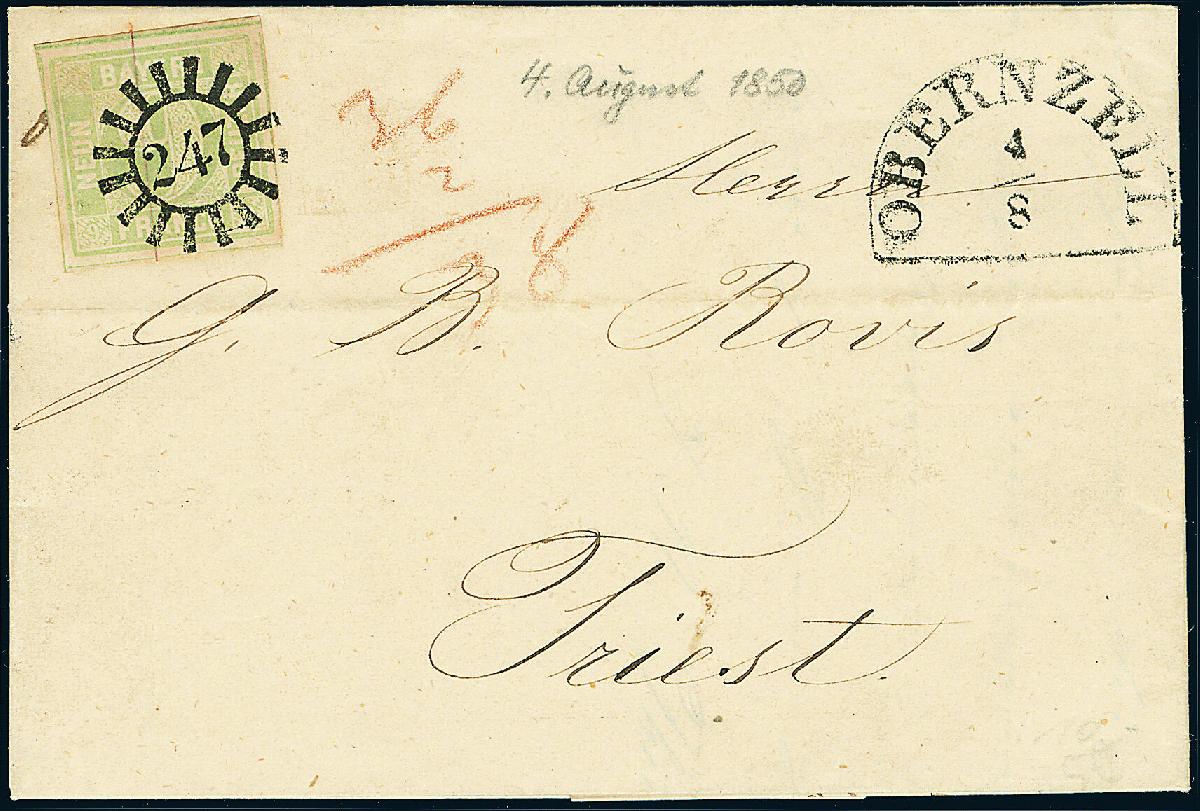 BAYERN
NEUN
247
26
2
28
4. August 1850
OBERNZELL
4/8
Herrn
G. B. Rovis
Triest.